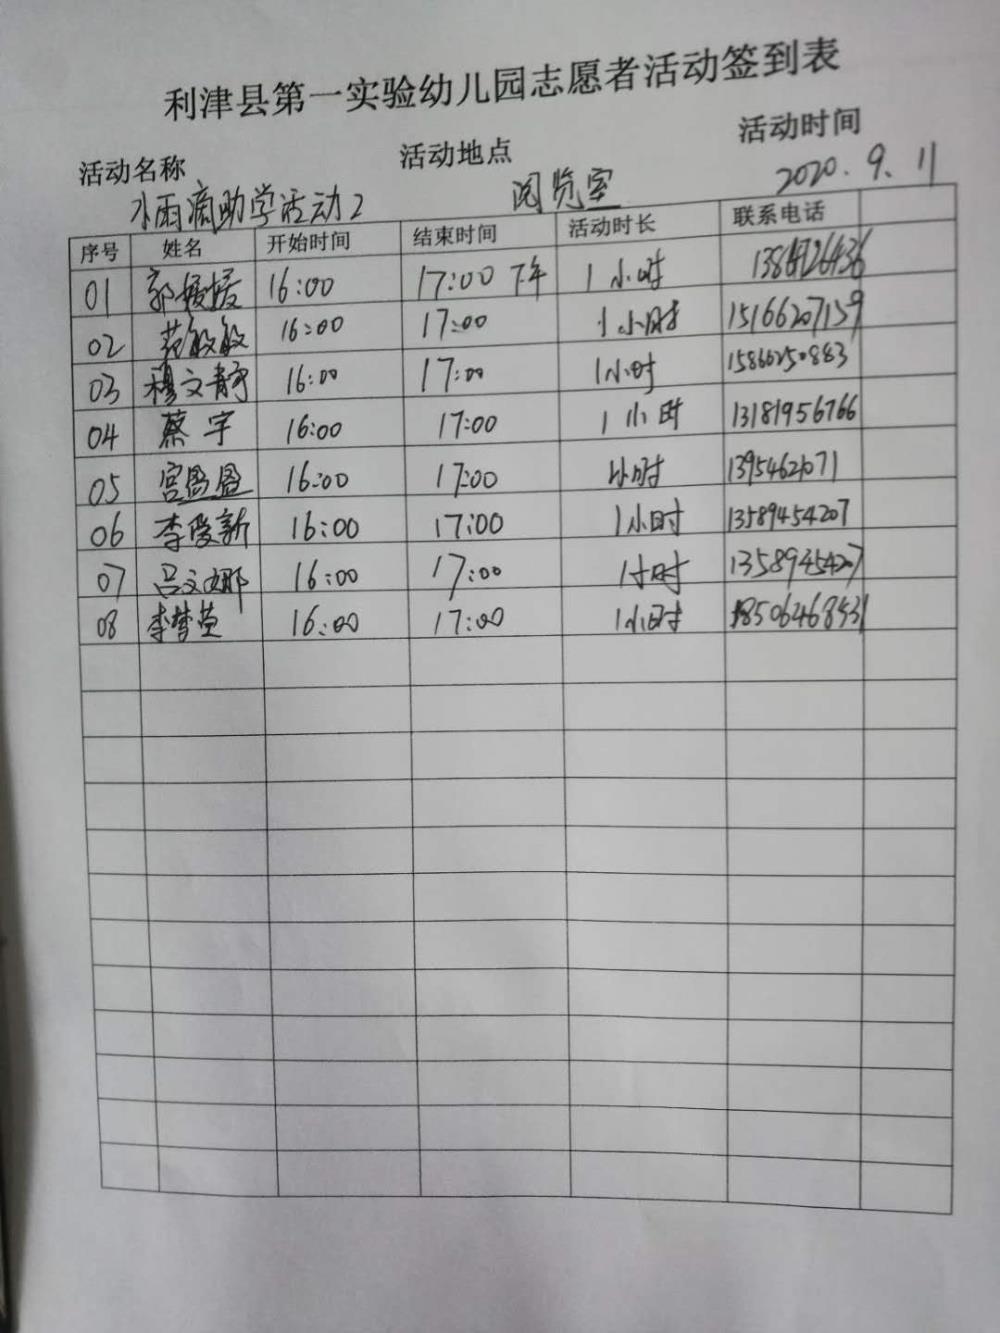 利津县第一实验幼儿园志愿者活动签到表
活动名称 活动地点 活动时间
小雨滴助学活动2 阅览室 2020.9.11
序号 姓名 开始时间 结束时间 活动时长 联系电话
01 郭媛媛 16:00 17:00 下午 1小时
02 范敏敏 16:00 17:00 1小时 15166207159
03 穆文静 16:00 17:00 1小时 15866250883
04 蔡宇 16:00 17:00 1小时 13181956766
05 宫盈盈 16:00 17:00 小时
06 李爱新 16:00 17:00 1小时 13589454207
07 吕文娜 16:00 17:00 1小时 13589454207
08 李梦莹 16:00 17:00 1小时 18506468431